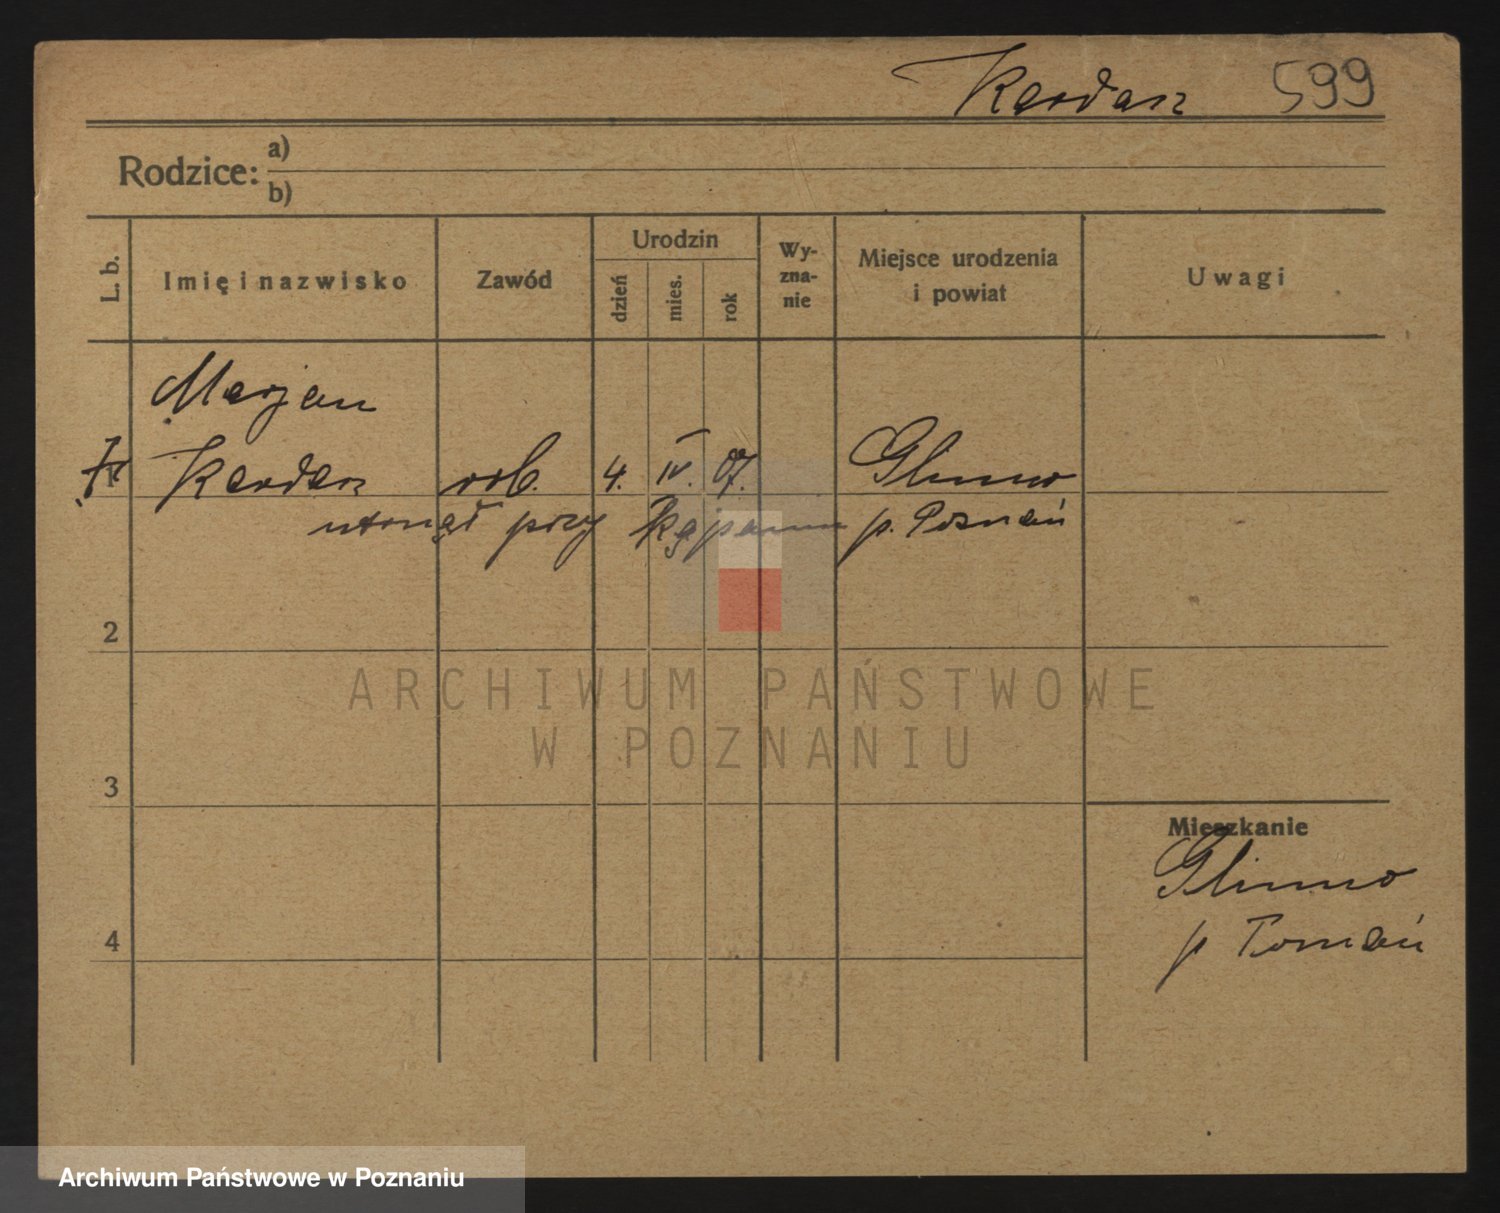 Kardasz 599
Rodzice: a)
b)
L. b. Imię i nazwisko Zawód Urodzin dzień mies. rok Wy-zna-nie Miejsce urodzenia i powiat Uwagi
Marjan
1 Kardasz rob. 4. IV. 07. Glinno
utonął przy kąpaniu p. Poznań
2
ARCHIWUM PAŃSTWOWE
W POZNANIU
3
Mieszkanie
Glinno
4 p Poznań
Archiwum Państwowe w Poznaniu